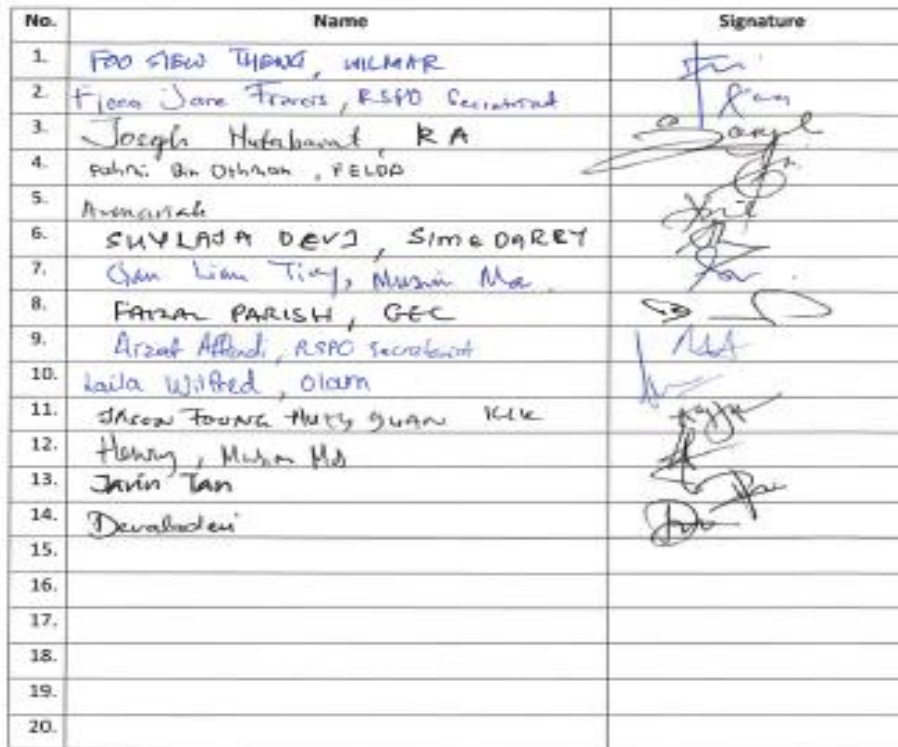 No. Name Signature
1. FOO SIEW THENG, WILMAR
2. Jane Francis, RSPO Secretariat
3. Joseph Hutabarat, RA
4. Fahmi Bin Othman, FELDA
5.
6. SHYLAJA DEVI, SIME DARBY
7. Gan Lian Tiong, Musim Mas
8. FAIZAL PARISH, GEC
9. Arzat Affandi, RSPO Secretariat
10. Laila Wilfred, Olam
11. JASON FOONG KLK
12. Henry, Musim Mas
13. Javin Tan
14.
15.
16.
17.
18.
19.
20.